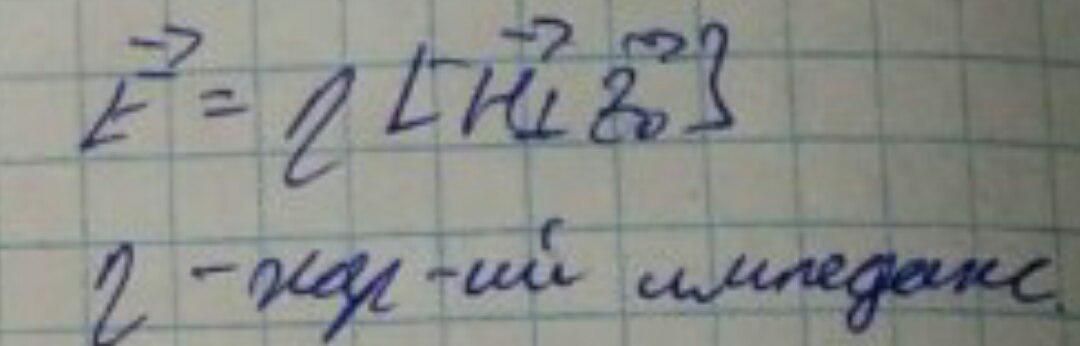 E⃗ = η [H⃗⊥ z⃗₀]
η - хар-ий импеданс.